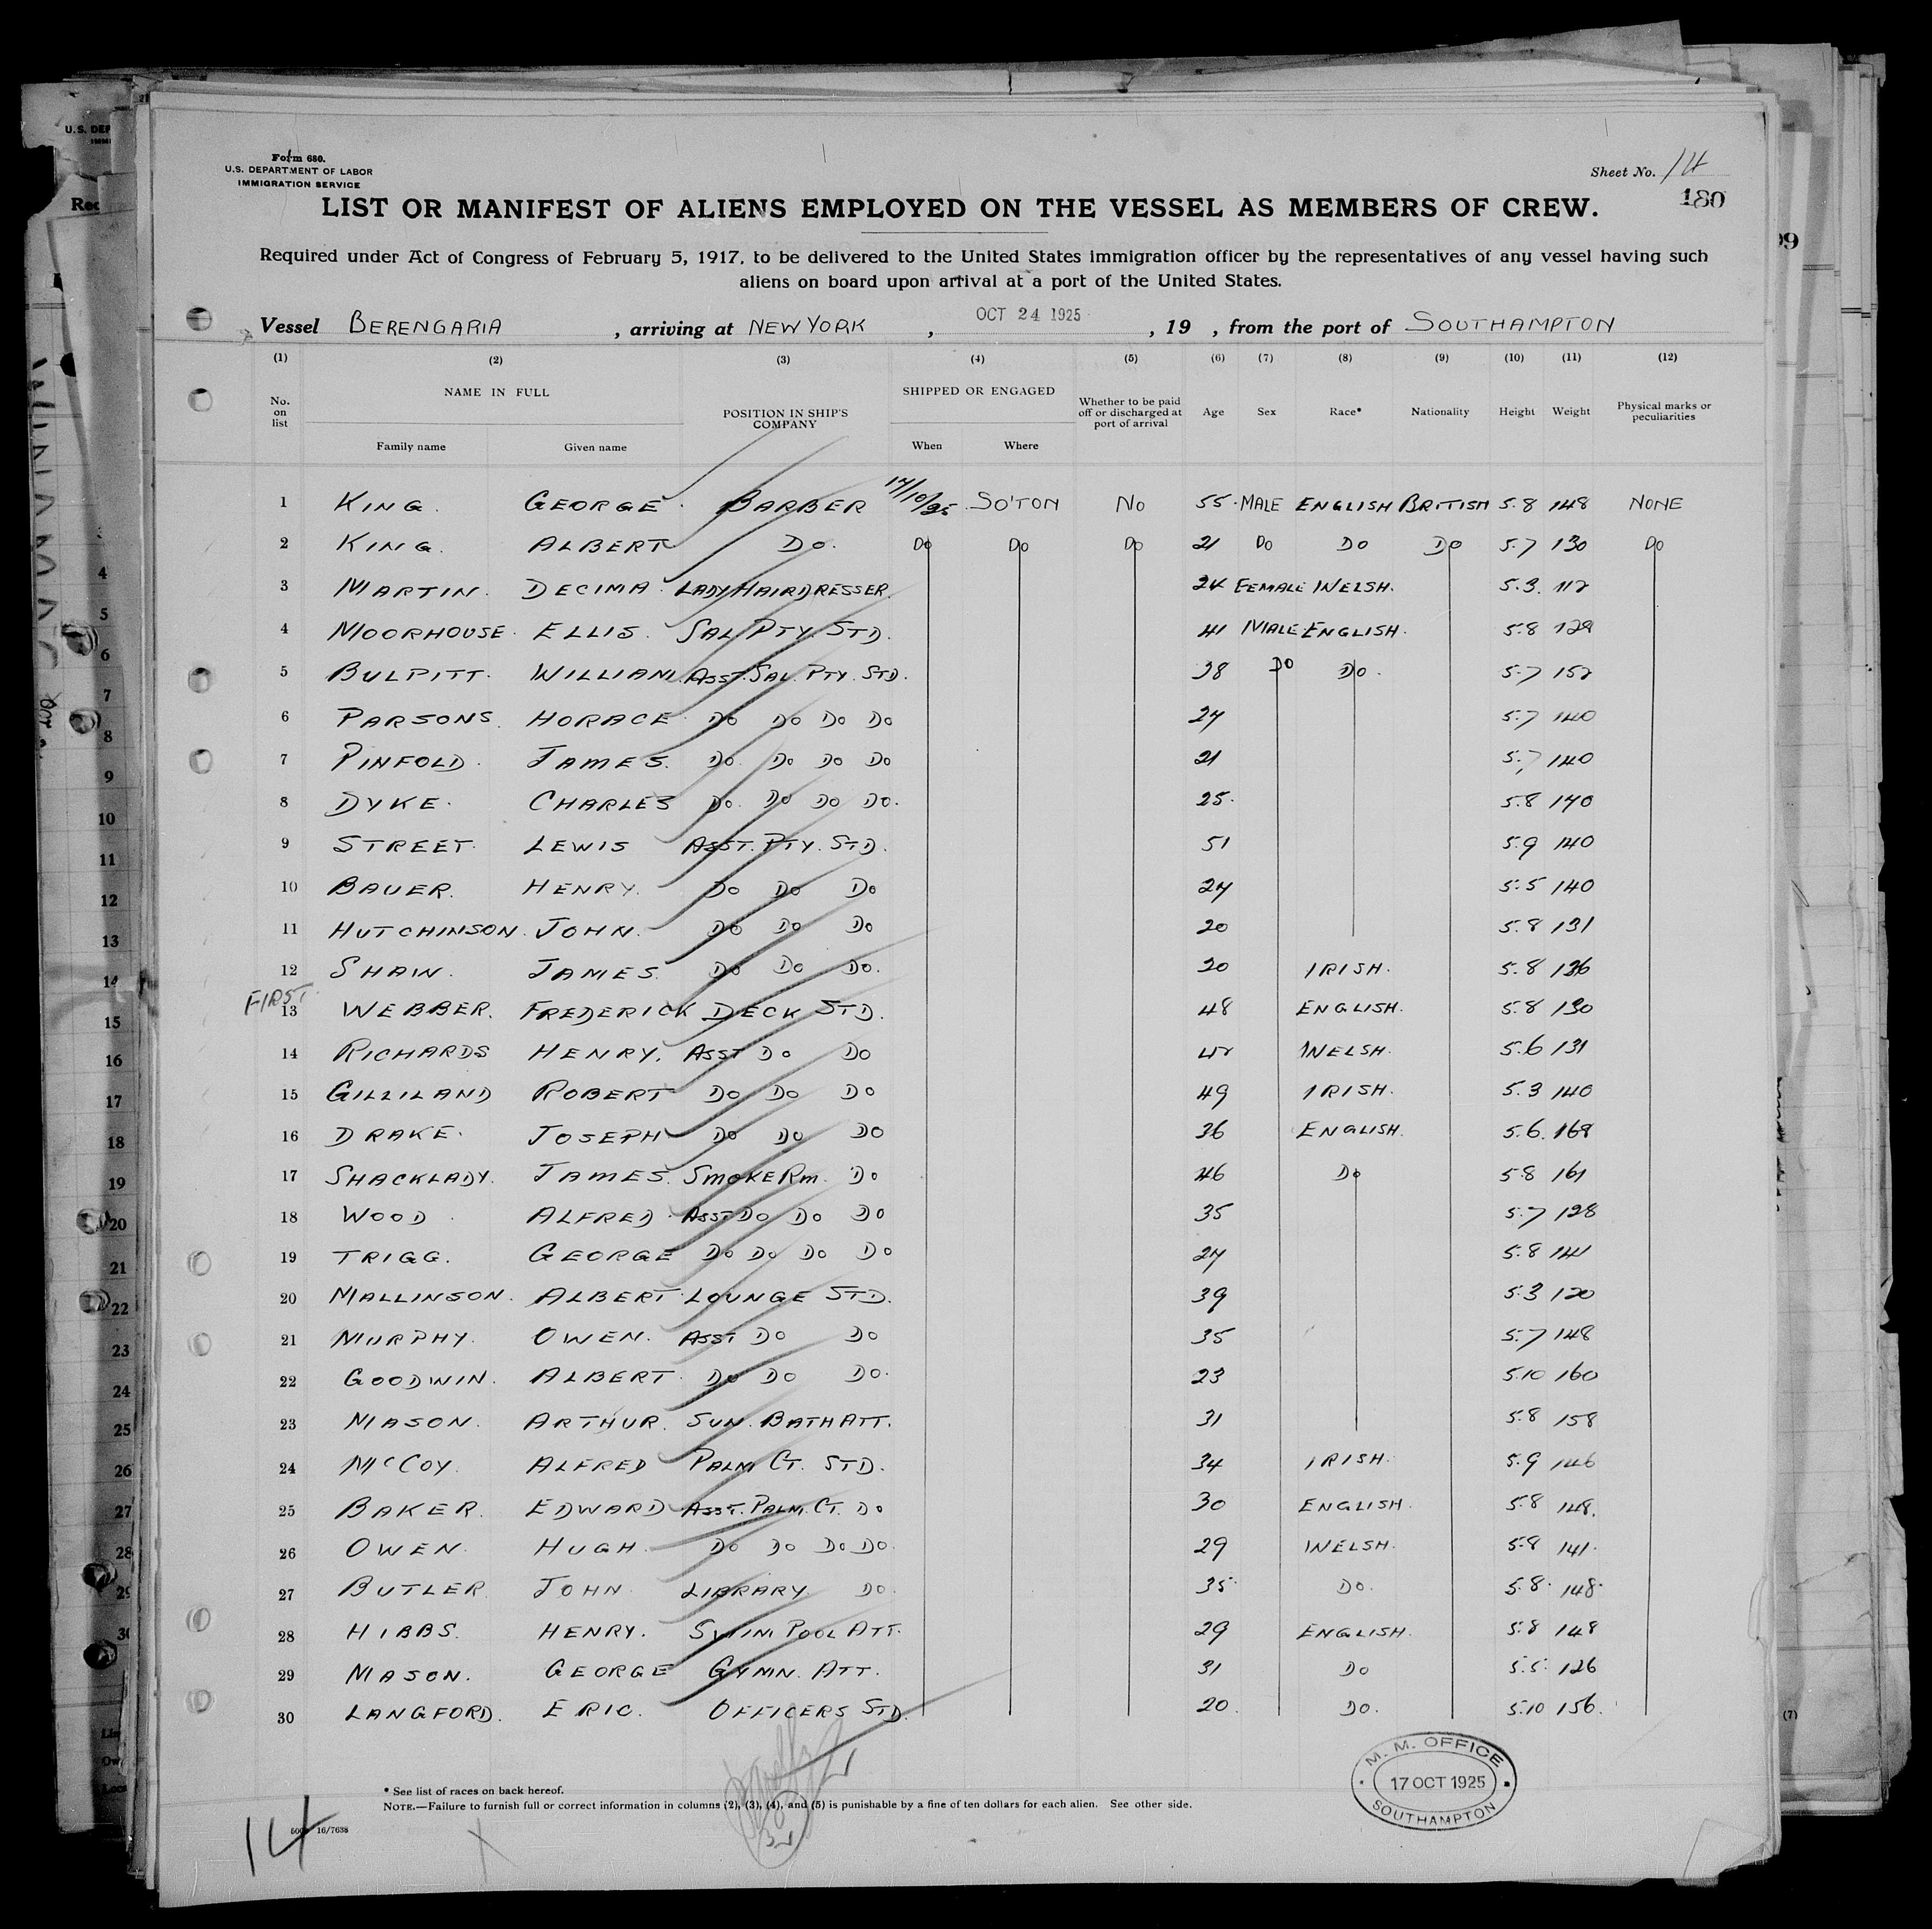 Form 680.
U.S. DEPARTMENT OF LABOR
IMMIGRATION SERVICE
Sheet No. 14
180
LIST OR MANIFEST OF ALIENS EMPLOYED ON THE VESSEL AS MEMBERS OF CREW.
Required under Act of Congress of February 5, 1917, to be delivered to the United States immigration officer by the representatives of any vessel having such
aliens on board upon arrival at a port of the United States.
Vessel BERENGARIA , arriving at NEW YORK , OCT 24 1925 , 19 , from the port of SOUTHAMPTON
(1) (2) (3) (4) (5) (6) (7) (8) (9) (10) (11) (12)
No. on list NAME IN FULL Family name Given name POSITION IN SHIP'S COMPANY SHIPPED OR ENGAGED When Where Whether to be paid off or discharged at port of arrival Age Sex Race* Nationality Height Weight Physical marks or peculiarities
1 KING. GEORGE. BARBER 17/10/25 SO'TON No 55 MALE ENGLISH BRITISH 5.8 148 NONE
2 KING. ALBERT Do. Do Do Do 21 Do Do Do 5.7 130 Do
3 MARTIN. DECIMA. LADY HAIRDRESSER. 24 FEMALE WELSH. 5.3. 112
4 MOORHOUSE. ELLIS. SAL. PTY. STD. 41 MALE ENGLISH. 5.8 129
5 BULPITT. WILLIAM. ASST. SAL. PTY. STD. 38 Do Do. 5.7 152
6 PARSONS. HORACE. Do Do Do Do 24 5.7 140
7 PINFOLD. JAMES. Do. Do Do Do 21 5.7 140
8 DYKE. CHARLES Do. Do Do Do. 25. 5.8 140
9 STREET. LEWIS ASST. PTY. STD. 51 5.9 140
10 BAUER. HENRY. Do Do Do 24 5.5 140
11 HUTCHINSON. JOHN. Do Do Do 20 5.8 131
12 SHAW. JAMES. Do Do Do. 20 IRISH. 5.8 136
FIRST
13 WEBBER. FREDERICK DECK STD. 48 ENGLISH. 5.8 130
14 RICHARDS HENRY. ASST Do Do 42 WELSH. 5.6 131
15 GILLILAND ROBERT Do Do Do 49 IRISH. 5.3 140
16 DRAKE. JOSEPH Do Do Do 36 ENGLISH. 5.6. 168
17 SHACKLADY. JAMES. SMOKE RM. Do 46 Do 5.8 161
18 WOOD. ALFRED. ASST Do Do Do 35 5.7 128
19 TRIGG. GEORGE Do Do Do Do 24 5.8 141
20 MALLINSON. ALBERT. LOUNGE STD. 39 5.3 120
21 MURPHY. OWEN. ASST Do Do 35 5.7 148
22 GOODWIN. ALBERT. Do Do Do. 23 5.10 160
23 MASON. ARTHUR. SUN. BATH ATT. 31 5.8 158
24 McCOY. ALFRED PALM CT. STD. 34 IRISH. 5.9 146
25 BAKER. EDWARD ASST. PALM. CT. Do 30 ENGLISH. 5.8 148.
26 OWEN. HUGH. Do Do Do Do. 29 WELSH. 5.8 141.
27 BUTLER JOHN LIBRARY Do. 35 Do. 5.8. 148.
28 HIBBS. HENRY. SWIM. POOL ATT. 29 ENGLISH. 5.8 148
29 MASON. GEORGE GYMN. ATT. 31 Do 5.5. 126
30 LANGFORD. ERIC. OFFICERS STD. 20. Do. 5.10 156.
M. M. OFFICE
17 OCT 1925
SOUTHAMPTON
* See list of races on back hereof.
NOTE.—Failure to furnish full or correct information in columns (2), (3), (4), and (5) is punishable by a fine of ten dollars for each alien. See other side.
16/7638
14